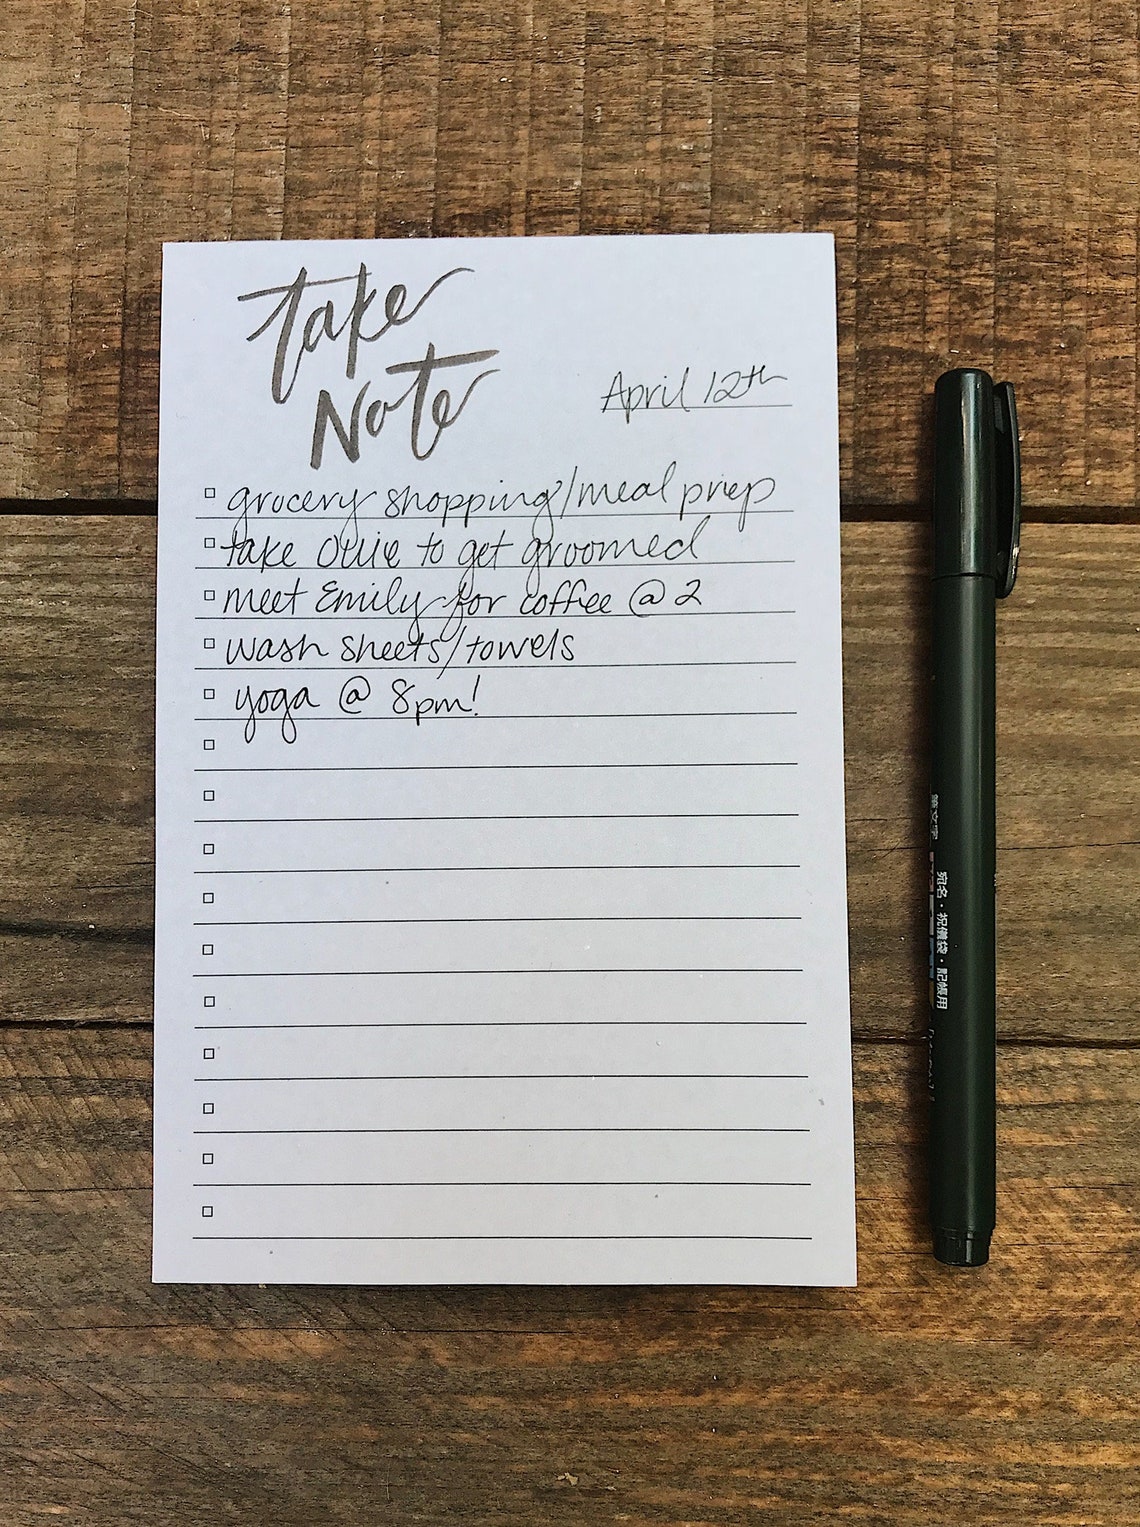 take
Note
April 12th
grocery shopping/meal prep
take Ollie to get groomed
meet Emily for coffee @ 2
wash sheets/towels
yoga @ 8pm!
筆文字
宛名・祝儀袋・記帳用